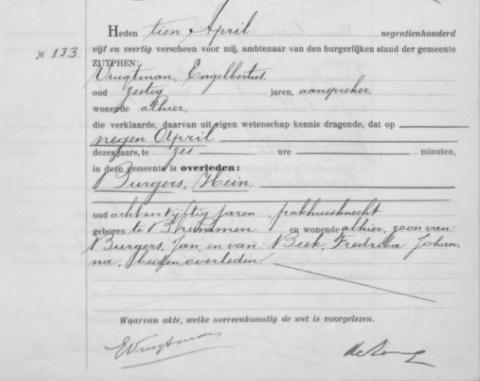 Heden tien April negentienhonderd
№ 133. vijf en veertig verscheen voor mij, ambtenaar van den burgerlijken stand der gemeente
ZUTPHEN:
Vrugtman, Engelbertus,
oud zestig jaren, aanspreker,
wonende alhier,
die verklaarde, daarvan uit eigen wetenschap kennis dragende, dat op
negen April
dezes jaars, te zes ure minuten,
in deze gemeente is overleden:
Burgers, Hein,
oud acht en vijftig jaren, pakhuisknecht
geboren te Brummen en wonende alhier, zoon van:
Burgers, Jan, en van: Beek, Fredrika Johan-
na, beiden overleden.
Waarvan akte, welke overeenkomstig de wet is voorgelezen.
EVrugtman